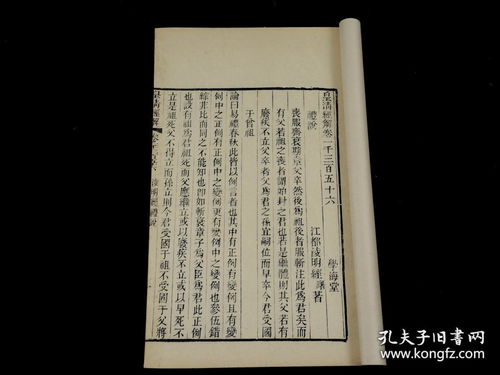 皇清經解卷一千三百五十六
學海堂
禮說
江都淩明經曙著
喪服齋衰期章父卒然後爲祖後者服斬注此爲君矣而
有父若祖之喪者謂始封之君也若是繼體則其父若有
廢疾不立父卒者爲君之孫宜嗣位而早卒今君受國
于曾祖
論曰易禮春秋此皆以例言者也其中有正例有變例且有變
例中之正例有正例中之變例也參伍錯
綜非比而同之不能知也卽如斬衰章子爲父臣爲君此正例
也設有祖爲君祖死而父應繼立或以廢疾不立或以早死不
立是祖死父不得立而孫立則今君受國于祖不受國于父將
皇清經解
凌明經禮說
孔夫子旧书网
www.kongfz.com